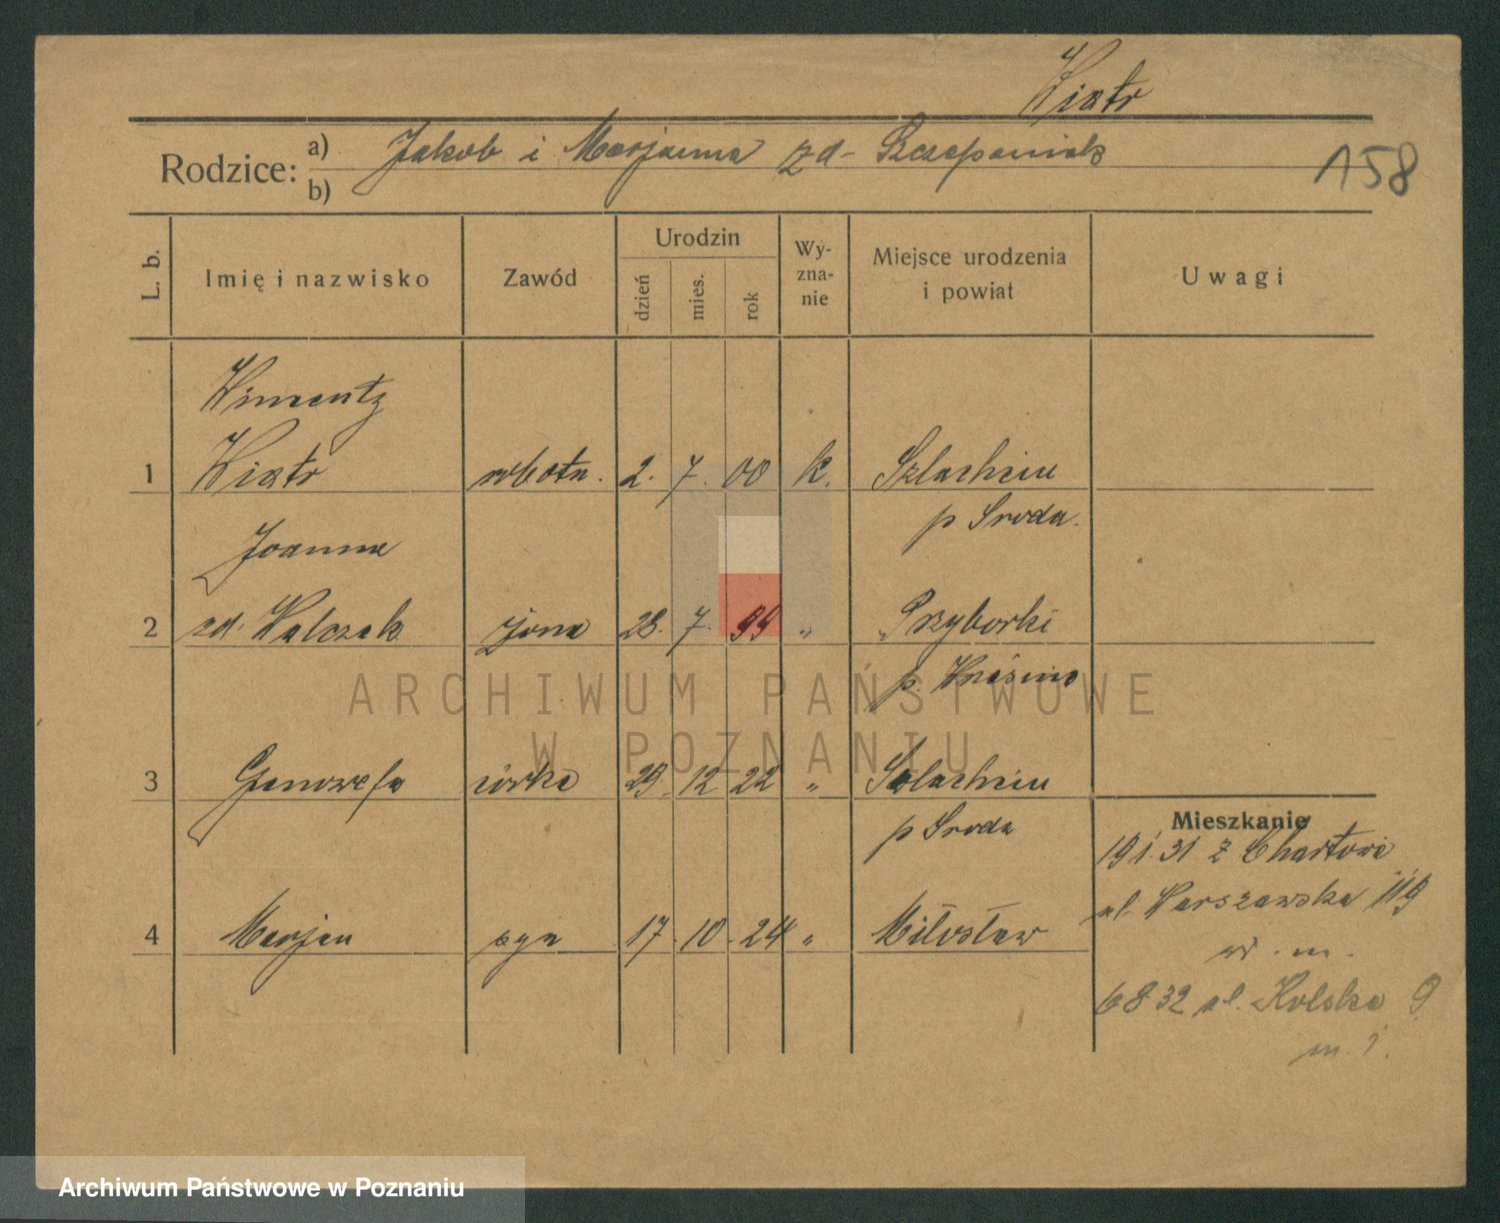 Wiatr
Rodzice: a) Jakob i Marjanna zd- Szczepaniak
b)
158
L. b.
Imię i nazwisko
Zawód
Urodzin
dzień
mies.
rok
Wy-
zna-
nie
Miejsce urodzenia
i powiat
Uwagi
Wincenty
1 Wiatr robotn. 2. 7. 00 k. Szlachcin
p Sroda.
Joanna
2 zd. Walczak żona 28. 7. 99 „ Przyborki
p. Wrześnio
3 Genowefa córka 29 12 22 „ Szlachcin
p Sroda
Mieszkanie
19 1 31 z Chartowa
ul. Warszawska 119
4 Marjan syn 17 10 24 „ Miłosław
6 8 32 ul. Kolska 9
m. 1.
ARCHIWUM PAŃSTWOWE
W POZNANIU
Archiwum Państwowe w Poznaniu